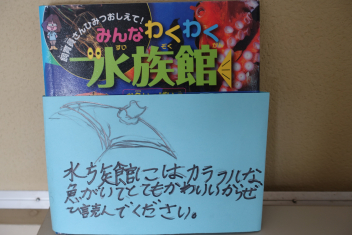 飼育員さんひみつおしえて！
みんなわくわく
水族館
すい ぞく かん
水族館にはカラフルな
魚がいてとてもかわいいからぜ
ひ読んでください。